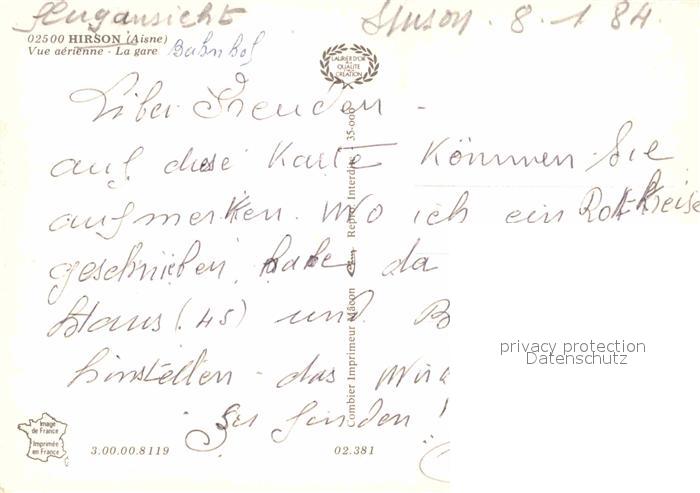 Flugansicht Hirson. 8.1.84.
02500 HIRSON (Aisne)
Vue aérienne - La gare Bahnhof
LAURIER D'OR
de la
QUALITÉ
CRÉATION
Liber Freuden -
auf diese Karte können Sie
aufmerken. Wo ich ein Rott Kreise
geschrieben habe da
Haus (45) und B
hinstellen - das wird
Sie finden!
Combier Imprimeur Mâcon Repro. Interdite 35-000
privacy protection
Datenschutz
Image
de France
Imprimée
en France
3.00.00.8119 02.381